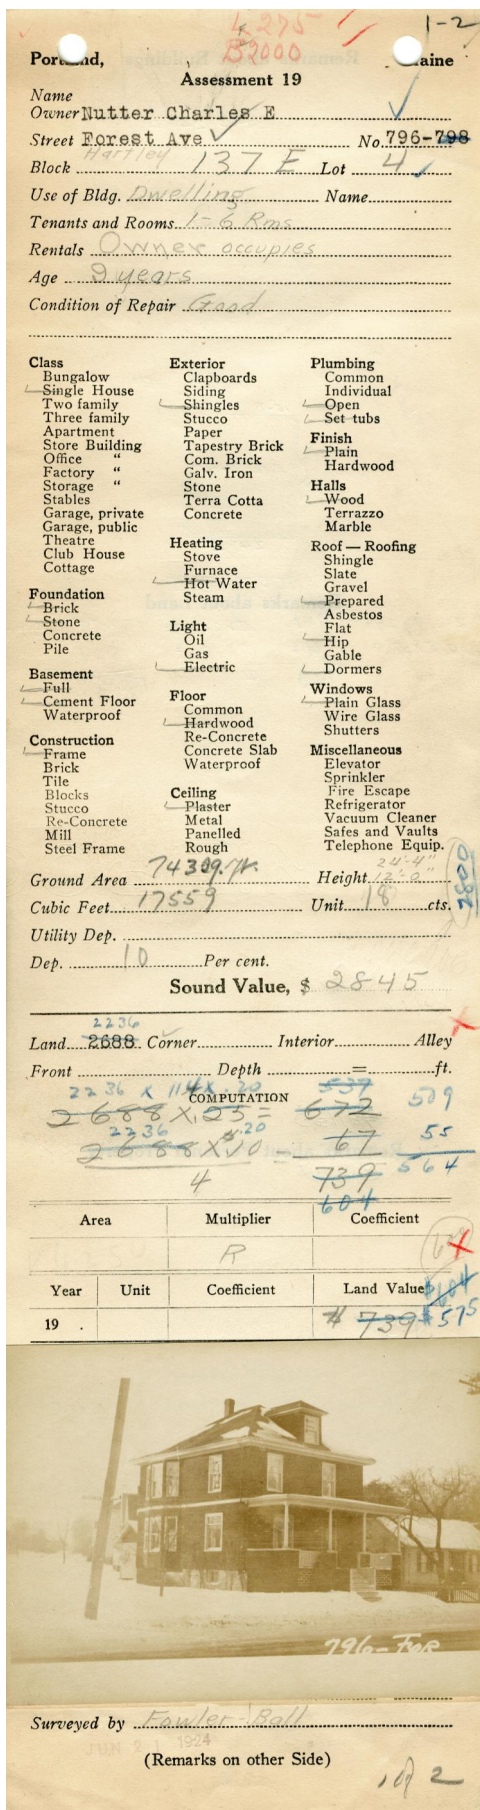 L 275
B2000
1-2
Portland, Maine
Assessment 19
Name
Owner Nutter Charles E
Street Forest Ave No. 796-798
Hartley
Block 137 E Lot 4
Use of Bldg. Dwelling Name
Tenants and Rooms 1-6 Rms
Rentals Owner occupies
Age 9 years
Condition of Repair Good
Class
Bungalow
Single House
Two family
Three family
Apartment
Store Building
Office "
Factory "
Storage "
Stables
Garage, private
Garage, public
Theatre
Club House
Cottage
Foundation
Brick
Stone
Concrete
Pile
Basement
Full
Cement Floor
Waterproof
Construction
Frame
Brick
Tile
Blocks
Stucco
Re-Concrete
Mill
Steel Frame
Exterior
Clapboards
Siding
Shingles
Stucco
Paper
Tapestry Brick
Com. Brick
Galv. Iron
Stone
Terra Cotta
Concrete
Heating
Stove
Furnace
Hot Water
Steam
Light
Oil
Gas
Electric
Floor
Common
Hardwood
Re-Concrete
Concrete Slab
Waterproof
Ceiling
Plaster
Metal
Panelled
Rough
Plumbing
Common
Individual
Open
Set tubs
Finish
Plain
Hardwood
Halls
Wood
Terrazzo
Marble
Roof — Roofing
Shingle
Slate
Gravel
Prepared
Asbestos
Flat
Hip
Gable
Dormers
Windows
Plain Glass
Wire Glass
Shutters
Miscellaneous
Elevator
Sprinkler
Fire Escape
Refrigerator
Vacuum Cleaner
Safes and Vaults
Telephone Equip.
24'-4"
Ground Area 743 Sq. ft. Height 12'-0"
2800
Cubic Feet 17559 Unit 18 cts.
Utility Dep.
Dep. 10 Per cent.
Sound Value, $ 2845
2236
Land 2688 Corner Interior Alley
Front Depth = ft.
2236 x 114 x .20 537
COMPUTATION
2688 X .25 = 672 509
2236 .20
2688 X .10 67 55
4 739 564
604
Area Multiplier Coefficient
R
Year Unit Coefficient Land Value
$604
19 . $ 739 $575
796-FOR
Surveyed by Fowler-Ball
JUN 21 1924
(Remarks on other Side)
1 of 2